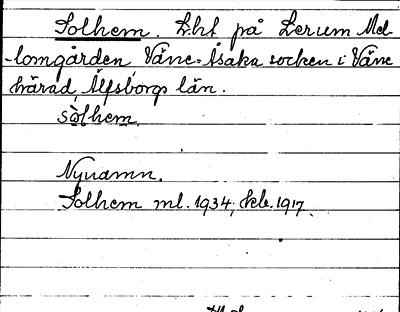 Solhem. Lht på Lerum Mel-
-lomgården Väne-Åsaka socken i Väne
härad, Älfsborgs län.
sòlhem.
Nynamn.
Solhem ml. 1934; kb. 1917.